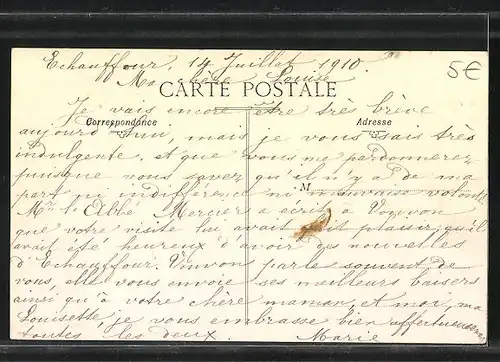 Echauffour, 14 Juillet 1910.
5€
Ma chère Louise
CARTE POSTALE
Je vais encore être très brève
Correspondance
Adresse
aujourd'hui, mais je vous sais très
indulgente, et que vous me pardonnerez
puisque vous savez qu'il n'y a de ma
M
part ni indifférence ni mauvaise volonté
Mr l'Abbé Mercier a écrit à Vonvon
que votre visite lui avait fait plaisir, qu'il
avait été heureux d'avoir des nouvelles
d'Echauffour. Vonvon parle souvent de
vous, elle vous envoie ses meilleurs baisers
ainsi qu'à votre chère maman, et moi, ma
Louisette je vous embrasse bien affectueusement
toutes les deux. Marie